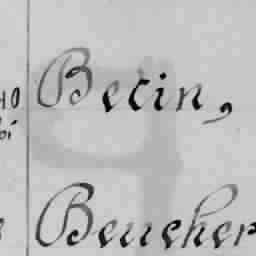 40 Becin,
Beucher